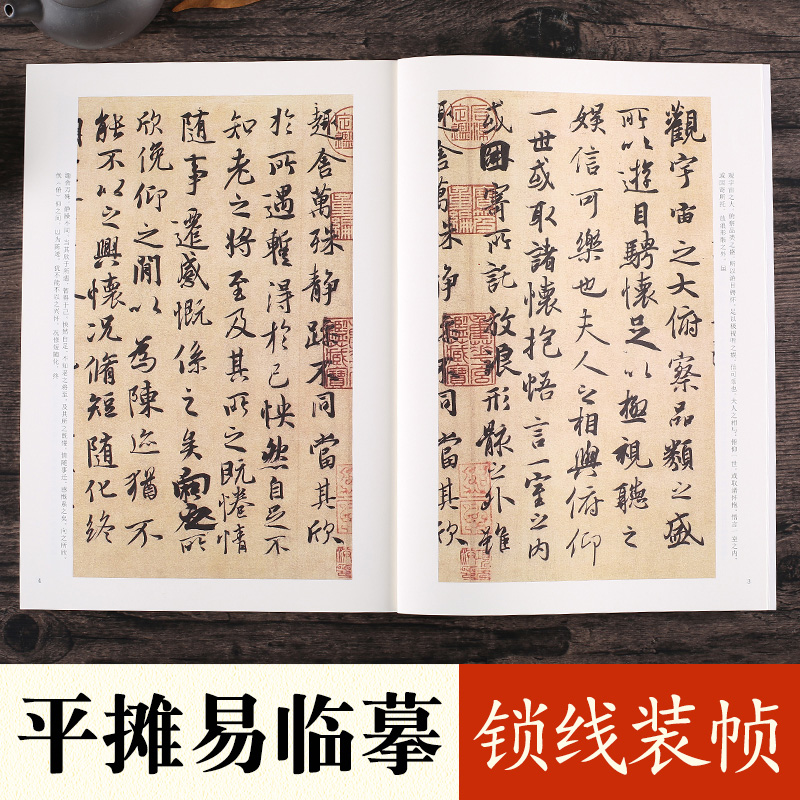 觀宇宙之大俯察品類之盛
所以遊目騁懷足以極視聽之
娛信可樂也夫人之相與俯仰
一世或取諸懷抱悟言一室之內
或因寄所託放浪形骸之外雖
趣舍萬殊靜躁不同當其欣
3
趣舍萬殊靜躁不同當其欣
於所遇暫得於己怏然自足不
知老之將至及其所之既惓情
隨事遷感慨係之矣向之所
欣俛仰之閒以為陳迹猶不
能不以之興懷況脩短隨化終
4
平摊易临摹
锁线装帧